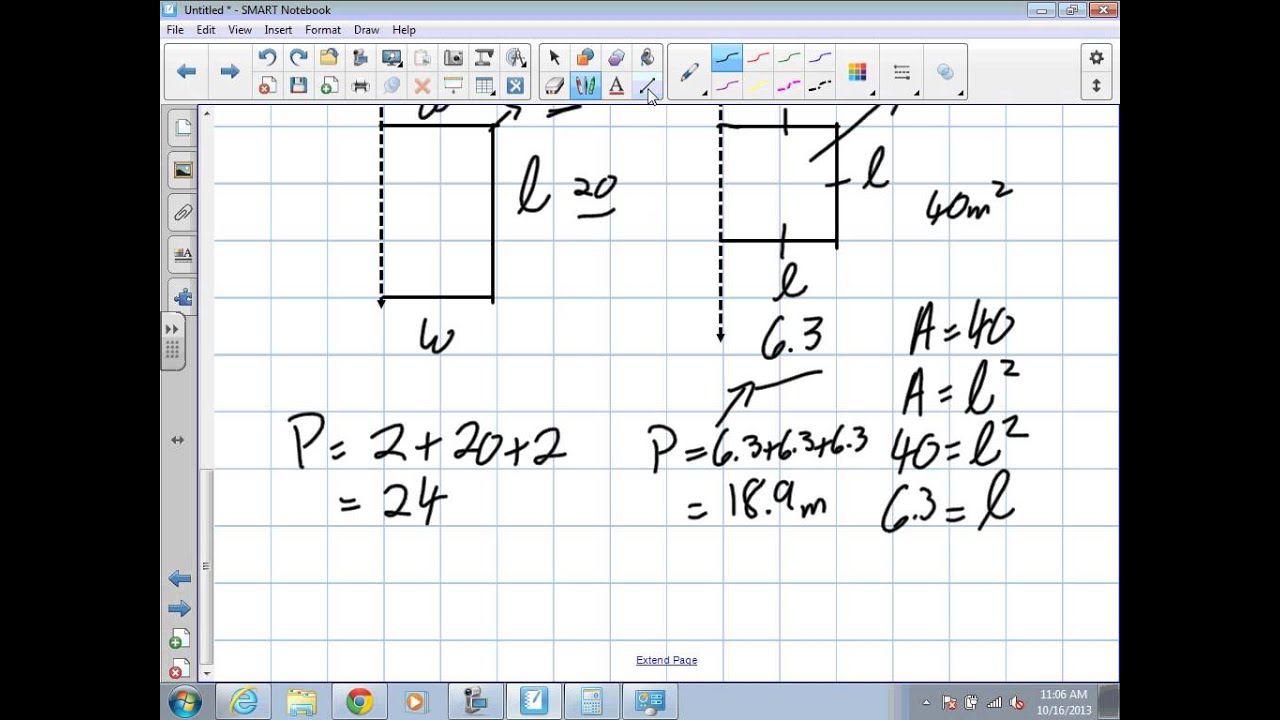 Untitled * - SMART Notebook
File Edit View Insert Format Draw Help
l 20
l
40m²
w
l
6.3
A = 40
A = l²
P = 2 + 20 + 2
P = 6.3+6.3+6.3
40 = l²
= 24
= 18.9m
6.3 = l
Extend Page
11:06 AM
10/16/2013